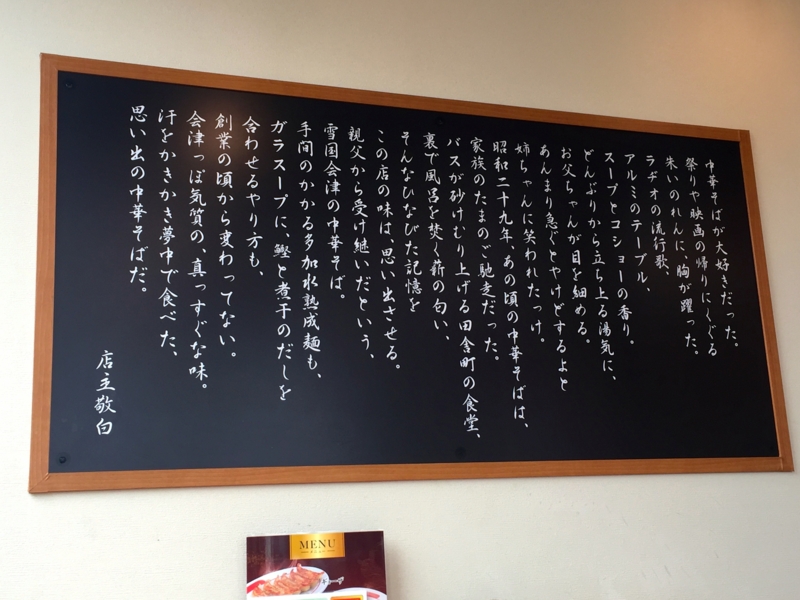 中華そばが大好きだった。
祭りや映画の帰りにくぐる
朱いのれんに、胸が躍った。
ラヂオの流行歌、
アルミのテーブル、
スープとコショーの香り。
どんぶりから立ち上る湯気に、
お父ちゃんが目を細める。
あんまり急ぐとやけどするよと
姉ちゃんに笑われたっけ。
昭和二十九年、あの頃の中華そばは、
家族のたまのご馳走だった。
バスが砂けむり上げる田舎町の食堂、
裏で風呂を焚く薪の匂い、
そんなひなびた記憶を
この店の味は、思い出させる。
親父から受け継いだという、
雪国会津の中華そば。
手間のかかる多加水熟成麺も、
ガラスープに、鰹と煮干のだしを
合わせるやり方も、
創業の頃から変わってない。
会津っぽ気質の、真っすぐな味。
汗をかきかき夢中で食べた、
思い出の中華そばだ。
店主敬白
MENU